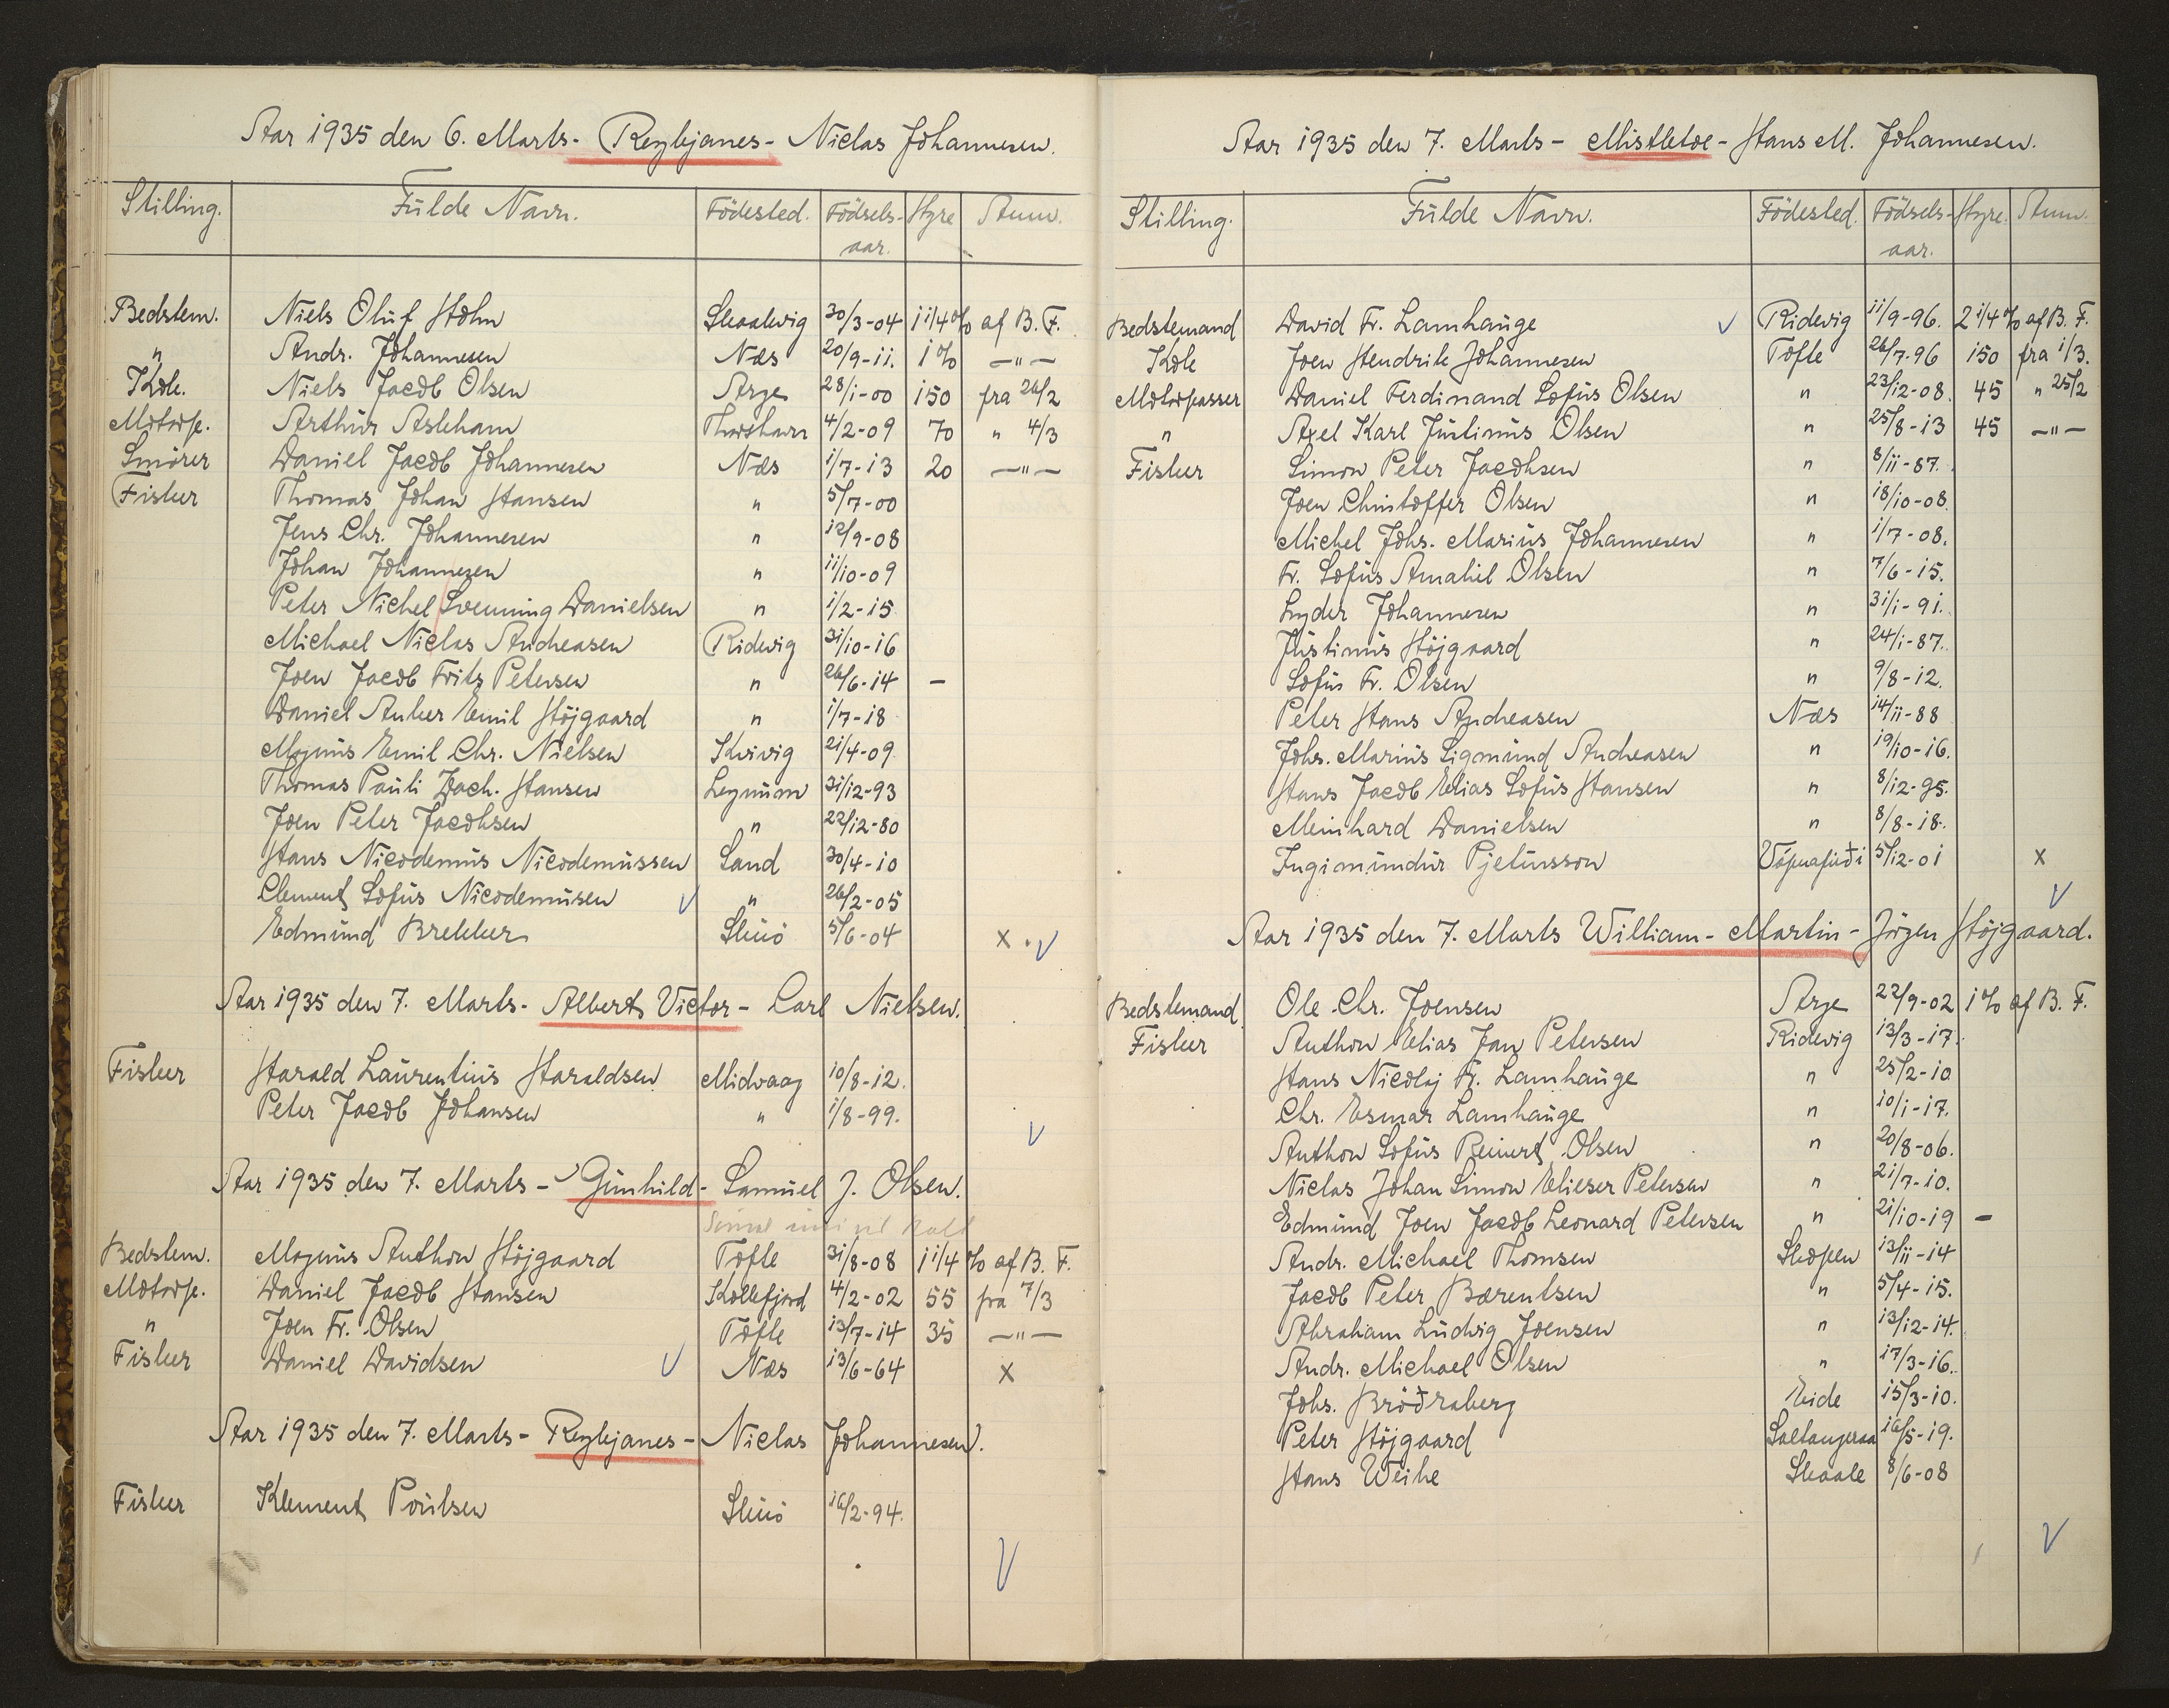 Aar 1935 den 6. Marts - Reykjanes - Niclas Johannesen.
Stilling. Fulde Navn. Födested. Födsels-aar. Hyre Anm.
Bedstem. Niels Oluf Holm Skaalevig 30/3-04 1 1/4 % af B. F.
" Andr. Johannesen Næs 20/9-11. 1 % —"—
Kok. Niels Jacob Olsen Arge 28/1-00 150 fra 26/2
Motorp. Arthur Askham Thorshavn 4/2-09 70 " 4/3
Smörer Daniel Jacob Johannesen Næs 1/7-13 20 —"—
Fisker Thomas Johan Hansen " 5/7-00
Jens Chr. Johannesen " 12/9-08
Johan Johannesen " 11/10-09
Peter Michel Svenning Danielsen " 1/2-15
Michael Niclas Andreasen Ridevig 31/10-16
Joen Jacob Fritz Petersen " 26/6-14 -
Daniel Anker Emil Höjgaard " 1/7-18
Magnus Emil Chr. Nielsen Kvivig 21/4-09
Thomas Pauli Zach. Hansen Leynum 31/12-93
Joen Peter Jacobsen " 22/12-80
Hans Nicodemus Nicodemussen Sand 30/4-10
Clement Lofus Nicodemusen V " 26/2-05
Edmund Brekker Skuö 5/6-04 x . V
Aar 1935 den 7. Marts - Albert Victor - Carl Nielsen.
Fisker Harald Laurentius Haraldsen Midvaag 10/8-12.
Peter Jacob Johansen " 1/8-99.
V
Aar 1935 den 7. Marts - Gunhild - Samuel J. Olsen.
Bedstem. Magnus Anthon Höjgaard Tofte 31/8-08 1 1/4 % af B. F.
Motorp. Daniel Jacob Hansen Kollefjord 4/2-02 55 fra 7/3
" Joen Fr. Olsen Tofte 13/7-14 35 —"—
Fisker Daniel Davidsen V Næs 13/6-64 x
Aar 1935 den 7. Marts - Reykjanes - Niclas Johannesen.
Fisker Klement Poulsen Skuö 16/2-94.
V
Aar 1935 den 7. Marts - Mistletoe - Hans M. Johannesen.
Stilling. Fulde Navn. Födested. Födsels-aar. Hyre. Anm.
Bedstemand David Fr. Lamhauge V Ridevig 11/9-96. 2 1/4 % af B. F.
Kok Joen Hendrik Johannesen Tofte 26/7-96 150 fra 1/3.
Motorpasser Daniel Ferdinand Lofus Olsen " 23/12-08. 45 " 25/2
" Axel Karl Justinus Olsen " 25/8-13 45 —"—
Fisker Simon Peter Jacobsen " 8/11-87.
Joen Christoffer Olsen " 18/10-08.
Michel Johs. Marius Johannesen " 1/7-08.
Fr. Lofus Amaliel Olsen " 7/6-15.
Lyder Johannesen " 31/1-91.
Justinus Höjgaard " 24/1-87.
Lofus Fr. Olsen " 9/8-12.
Peter Hans Andreasen Næs 14/11-88
Johs. Marius Sigmund Andreasen " 19/10-16.
Hans Jacob Elias Lofus Hansen " 8/12-95.
Meinhard Danielsen " 8/8-18.
Ingimundur Pjetursson 5/12-01 x
V
Aar 1935 den 7. Marts William-Martin - Jörgen Höjgaard.
Bedstemand Ole Chr. Joensen Arge 22/9-02 1 % af B. F.
Fisker Anthon Elias Jan Petersen Ridevig 13/3-17.
Hans Nicolaj Fr. Lamhauge " 25/2-10
Chr. Esmar Lamhauge " 10/1-17.
Anthon Lofus Reinert Olsen " 20/8-06.
Niclas Johan Simon Elieser Petersen " 21/7-10.
Edmund Joen Jacob Leonard Petersen " 21/10-19 -
Andr. Michael Thomsen Skopen 13/11-14
Jacob Peter Bærentsen " 5/4-15.
Abraham Ludvig Joensen " 13/12-14.
Andr. Michael Olsen " 17/3-16.
Johs. Bröðraberg Eide 15/3-10.
Peter Höjgaard Saltangeraa 16/5-19.
Hans Weihe Skaale 8/6-08
V